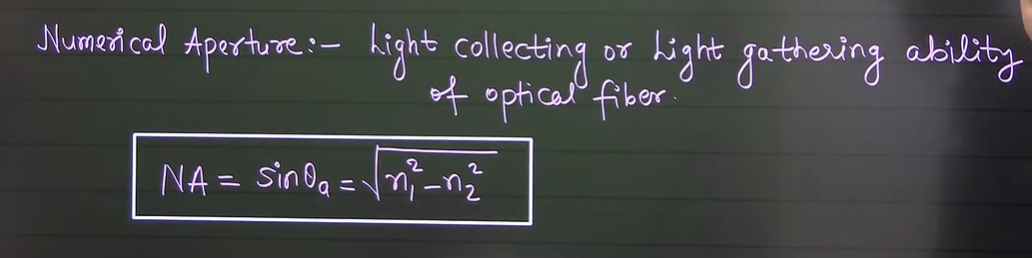 Numerical Aperture:- Light collecting or Light gathering ability
of optical fiber.
NA = sinθₐ = √(n₁² - n₂²)